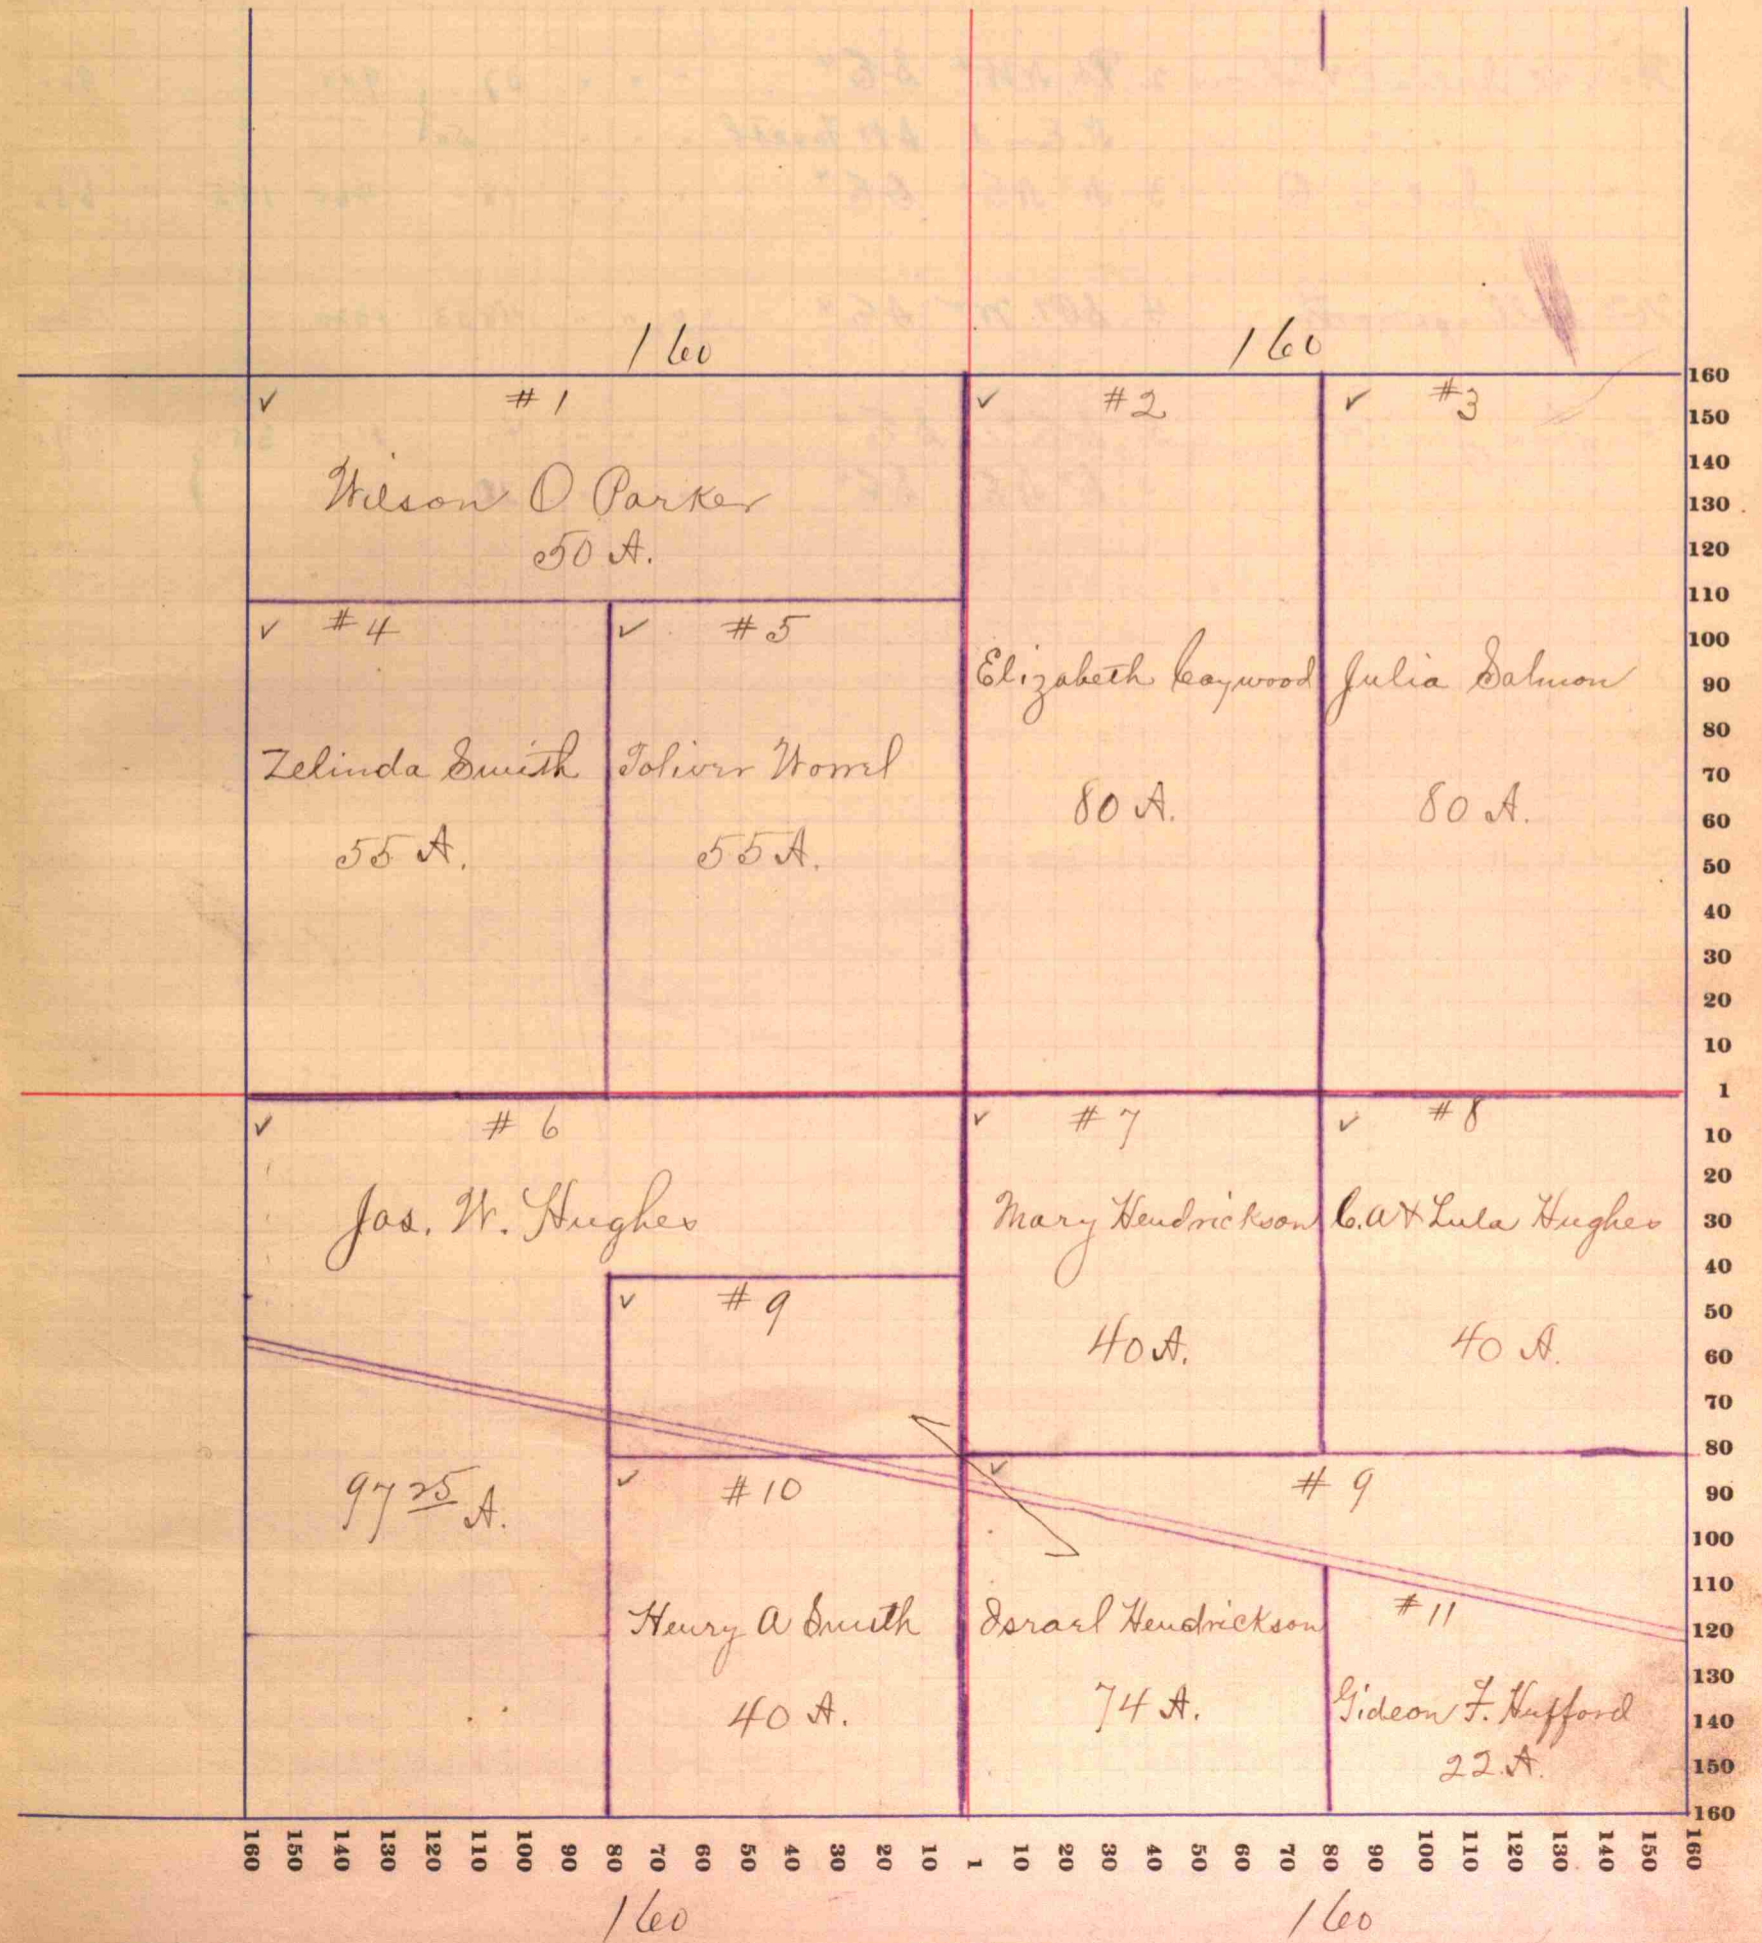 160
160
✓ #1
Wilson O Parker
50 A.
✓ #2
Elizabeth Caywood
80 A.
✓ #3
Julia Salmon
80 A.
✓ #4
Zelinda Smith
55 A.
✓ #5
Toliver Worrel
55 A.
✓ #6
Jas. W. Hughes
97 25 A.
✓ #7
Mary Hendrickson
40 A.
✓ #8
C. A & Lula Hughes
40 A.
✓ #9
✓ #10
Henry A Smith
40 A.
✓ #9
Israel Hendrickson
74 A.
#11
Gideon F. Hufford
22 A.
160
150
140
130
120
110
100
90
80
70
60
50
40
30
20
10
1
10
20
30
40
50
60
70
80
90
100
110
120
130
140
150
160
160 150 140 130 120 110 100 90 80 70 60 50 40 30 20 10 1 10 20 30 40 50 60 70 80 90 100 110 120 130 140 150 160
160
160